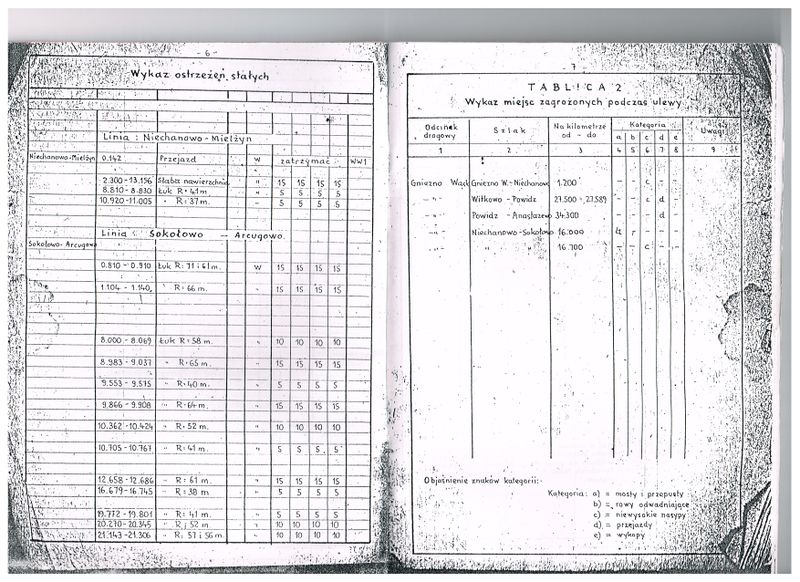 - 6 -
Wykaz ostrzeżeń stałych
Linia : Niechanowo - Mielżyn
Niechanowo-Mielżyn 0.142 Przejazd W zatrzymać WW1
2.300 - 13.156 Słaba nawierzchnia " 15 15 15 15
8.810 - 8.830 Łuk R = 41 m. " 5 5 5 5
10.920 - 11.005 " R = 37 m. " 5 5 5 5
Linia : Sokołowo - Arcugowo
Sokołowo-Arcugowo
0.810 - 0.910 Łuk R = 71 i 61 m. W 15 15 15 15
1.104 - 1.140 " R = 66 m. " 15 15 15 15
8.000 - 8.069 Łuk R = 58 m. " 10 10 10 10
8.983 - 9.037 " R = 65 m. " 15 15 15 15
9.553 - 9.575 " R = 40 m. " 5 5 5 5
9.866 - 9.908 " R = 64 m. " 15 15 15 15
10.362 - 10.424 " R = 52 m. " 10 10 10 10
10.705 - 10.767 " R = 41 m. " 5 5 5 5
12.658 - 12.686 " R = 61 m. " 15 15 15 15
16.679 - 16.745 " R = 38 m " 5 5 5 5
19.772 - 19.801 " R = 41 m. " 5 5 5 5
20.270 - 20.345 " R = 52 m. " 10 10 10 10
21.143 - 21.306 " R = 57 i 56 m. " 10 10 10 10
7
TABLICA 2
Wykaz miejsc zagrożonych podczas ulewy
Odcinek drogowy Szlak Na kilometrze od - do Kategoria Uwagi
a b c d e
1 2 3 4 5 6 7 8 9
Gniezno Wąsk Gniezno W.-Niechanow 1.200 - - c - -
- " - Witkowo - Powidz 27.500 - 27.589 - - c d -
- " - Powidz - Anastazewo 34.300 - - - d -
- " - Niechanowo-Sokołowo 16.000
- " - " " 16.700 - - c - -
Objaśnienie znaków kategorii:
Kategoria: a) = mosty i przepusty
b) = rowy odwadniające
c) = niewysokie nasypy
d) = przejazdy
e) = wykopy